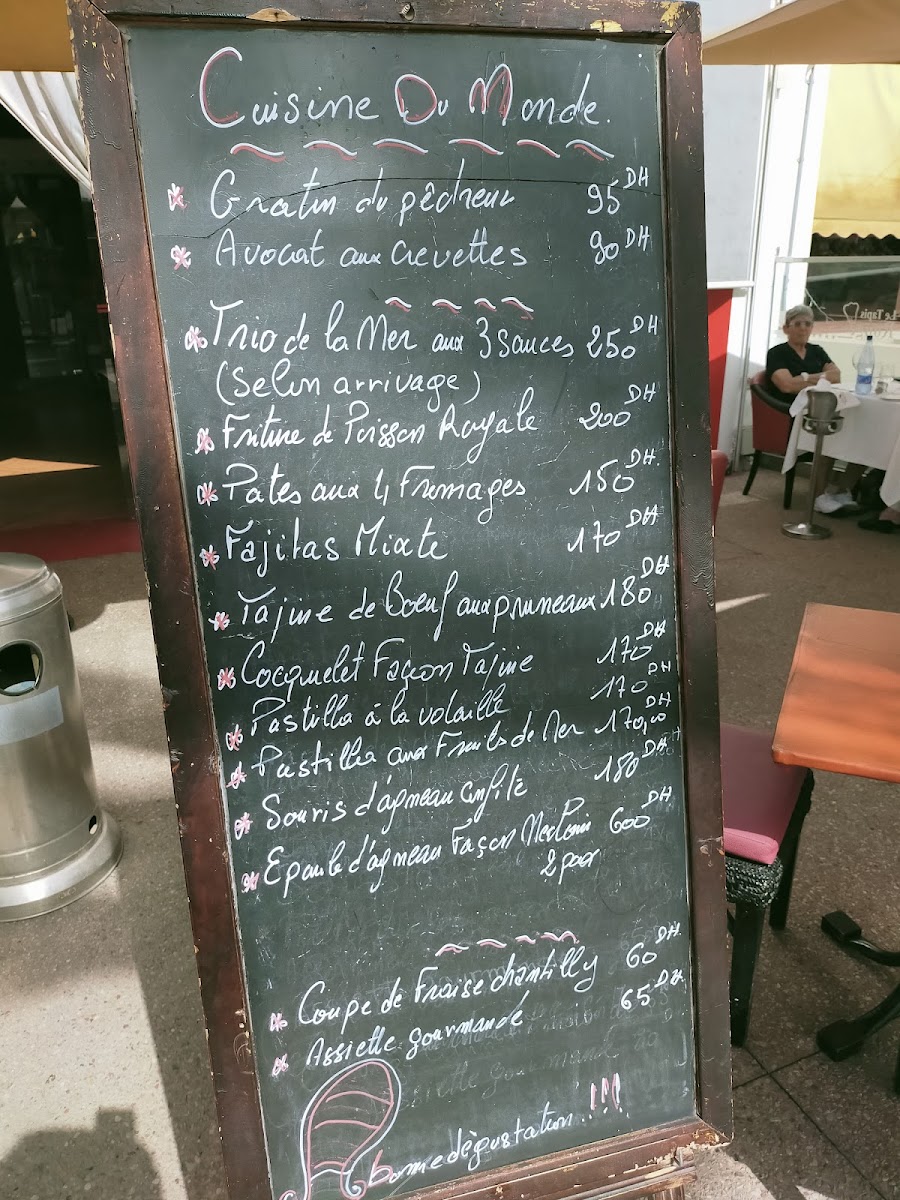 Cuisine Du Monde.
Gratin du pêcheur 95 DH
Avocat aux crevettes 90 DH
Trio de la Mer aux 3 Sauces 250 DH
(Selon arrivage)
Friture de Poisson Royale 200 DH
Pates aux 4 Fromages 150 DH.
Fajitas Mixte 170 DH
Tajine de boeuf aux pruneaux 180 DH
Cocquelet Façon Tajine 170 DH
Pastilla á la volaille 170 DH
Pastilla aux Fruits de Mer 170,00 DH
Souris d'agneau confite 180 DH.
Epaule d'agneau Façon Mechoui 600 DH
2 pax
Coupe de Fraise chantilly 60 DH.
Assiette gourmande 65 DH.
bonne dégustation !!!
Le Tapis